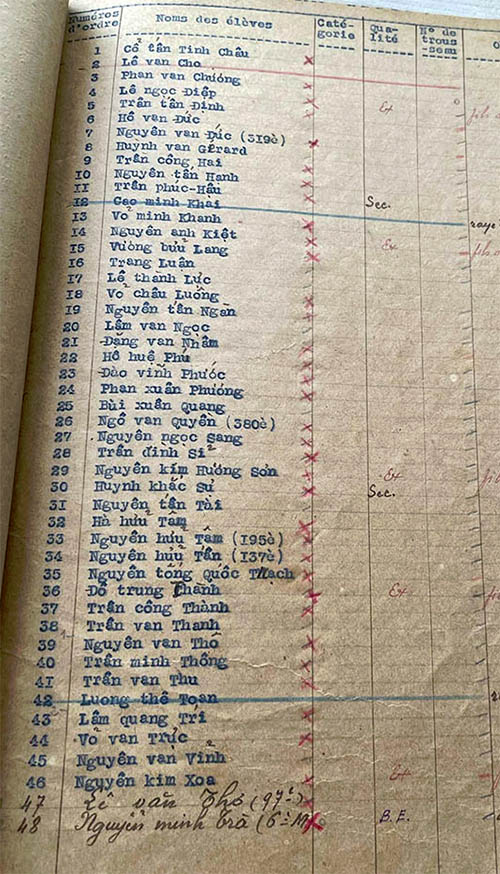 Numéros d'ordre Noms des élèves Caté-gorie Qua-lité No de trous-seau
1 Cổ tấn Tinh Châu
2 Lê van Cho
3 Phan van Chuông
4 Lê ngọc Điệp
5 Trần tấn Định Ex
6 Hồ van Đức
7 Nguyễn van Đức (319è)
8 Huynh van Gérard
9 Trần công Hai
10 Nguyễn tấn Hanh
11 Trần phúc-Hậu
12 Cao minh Khai Sec.
13 Vỏ minh Khanh raye
14 Nguyễn anh Kiệt
15 Vương bửu Lang Ex
16 Trang Luận
17 Lê thành Lực
18 Vỏ châu Luông
19 Nguyễn tấn Ngân
20 Lâm van Ngoc
21 Đặng van Nhâm
22 Hồ huệ Phu
23 Đào vinh Phước
24 Phan xuân Phương
25 Bùi xuân Quang
26 Ngô van Quyên (380è)
27 Nguyễn ngọc Sang
28 Trần đình Si
29 Nguyễn kim Hương Sơn Ex
30 Huynh khắc Sư Sec.
31 Nguyễn tấn Tài
32 Hà hửu Tâm
33 Nguyễn hửu Tâm (195è)
34 Nguyễn hửu Tấn (137è)
35 Nguyễn tống Quốc Thạch
36 Đổ trung Thành Ex
37 Trần công Thành
38 Trần van Thanh
39 Nguyễn van Thô
40 Trần minh Thông
41 Trần van Thu
42 Luong thê Toan
43 Lâm quang Tri
44 Vỏ van Trực
45 Nguyễn van Vinh
46 Nguyễn kim Xoa Ex
47 Lê văn Thọ (97è)
48 Nguyễn minh Trà B.E.